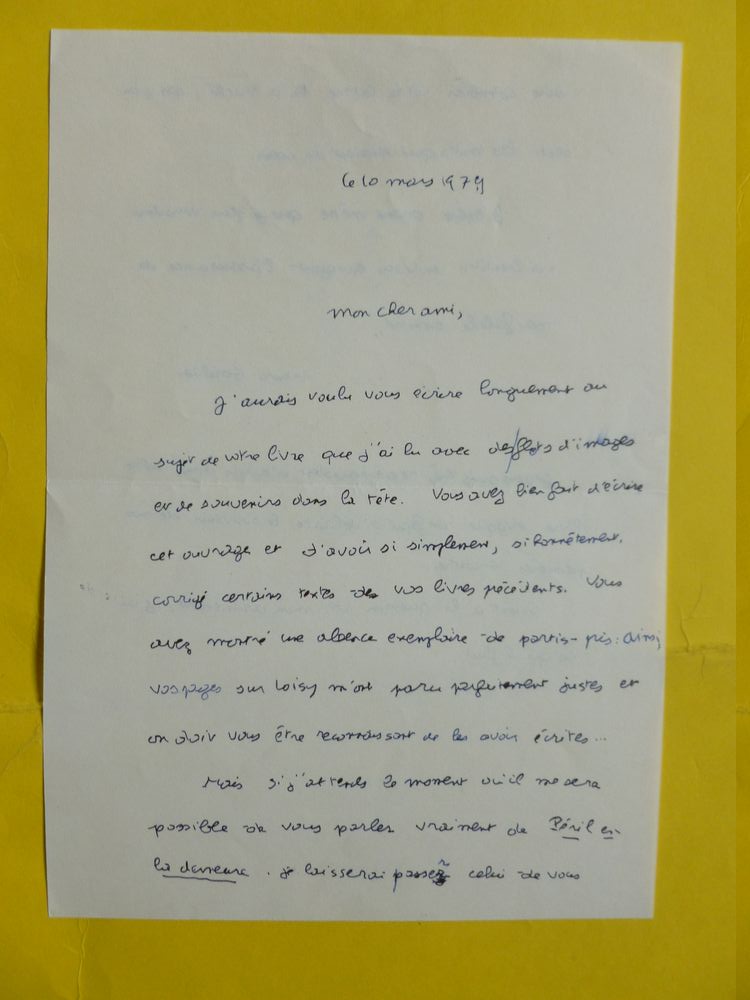 le 10 mars 1979
Mon cher ami,
J'aurais voulu vous écrire longuement au
sujet de votre livre que j'ai lu avec des flots d'images
et de souvenirs dans la tête. Vous avez bien fait d'écrire
cet ouvrage et d'avoir si simplement, si honnêtement,
corrigé certains textes de vos livres précédents. Vous
avez montré une absence exemplaire de partis-pris : ainsi,
vos pages sur Loisy m'ont paru parfaitement justes et
on doit vous être reconnaissant de les avoir écrites...
Mais si j'attends le moment où il me sera
possible de vous parler vraiment de Péril en
la demeure, je laisserai passer celui de vous